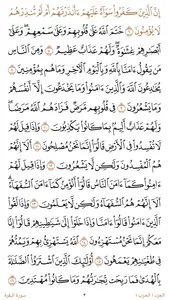 إِنَّ ٱلَّذِينَ كَفَرُوا۟ سَوَآءٌ عَلَيْهِمْ ءَأَنذَرْتَهُمْ أَمْ لَمْ تُنذِرْهُمْ
لَا يُؤْمِنُونَ ٦ خَتَمَ ٱللَّهُ عَلَىٰ قُلُوبِهِمْ وَعَلَىٰ سَمْعِهِمْ ۖ وَعَلَىٰٓ
أَبْصَٰرِهِمْ غِشَٰوَةٌ ۖ وَلَهُمْ عَذَابٌ عَظِيمٌ ٧ وَمِنَ ٱلنَّاسِ
مَن يَقُولُ ءَامَنَّا بِٱللَّهِ وَبِٱلْيَوْمِ ٱلْءَاخِرِ وَمَا هُم بِمُؤْمِنِينَ ٨
يُخَٰدِعُونَ ٱللَّهَ وَٱلَّذِينَ ءَامَنُوا۟ وَمَا يَخْدَعُونَ إِلَّآ أَنفُسَهُمْ
وَمَا يَشْعُرُونَ ٩ فِى قُلُوبِهِم مَّرَضٌ فَزَادَهُمُ ٱللَّهُ مَرَضًا ۖ
وَلَهُمْ عَذَابٌ أَلِيمٌۢ بِمَا كَانُوا۟ يَكْذِبُونَ ١٠ وَإِذَا قِيلَ لَهُمْ
لَا تُفْسِدُوا۟ فِى ٱلْأَرْضِ قَالُوٓا۟ إِنَّمَا نَحْنُ مُصْلِحُونَ ١١ أَلَآ إِنَّهُمْ
هُمُ ٱلْمُفْسِدُونَ وَلَٰكِن لَّا يَشْعُرُونَ ١٢ وَإِذَا قِيلَ لَهُمْ
ءَامِنُوا۟ كَمَآ ءَامَنَ ٱلنَّاسُ قَالُوٓا۟ أَنُؤْمِنُ كَمَآ ءَامَنَ ٱلسُّفَهَآءُ ۗ
أَلَآ إِنَّهُمْ هُمُ ٱلسُّفَهَآءُ وَلَٰكِن لَّا يَعْلَمُونَ ١٣ وَإِذَا لَقُوا۟
ٱلَّذِينَ ءَامَنُوا۟ قَالُوٓا۟ ءَامَنَّا وَإِذَا خَلَوْا۟ إِلَىٰ شَيَٰطِينِهِمْ قَالُوٓا۟ إِنَّا
مَعَكُمْ إِنَّمَا نَحْنُ مُسْتَهْزِءُونَ ١٤ ٱللَّهُ يَسْتَهْزِئُ بِهِمْ وَيَمُدُّهُمْ
فِى طُغْيَٰنِهِمْ يَعْمَهُونَ ١٥ أُو۟لَٰٓئِكَ ٱلَّذِينَ ٱشْتَرَوُا۟ ٱلضَّلَٰلَةَ
بِٱلْهُدَىٰ فَمَا رَبِحَت تِّجَٰرَتُهُمْ وَمَا كَانُوا۟ مُهْتَدِينَ ١٦
الجزء ١ الحزب ١ ٣ سورة البقرة